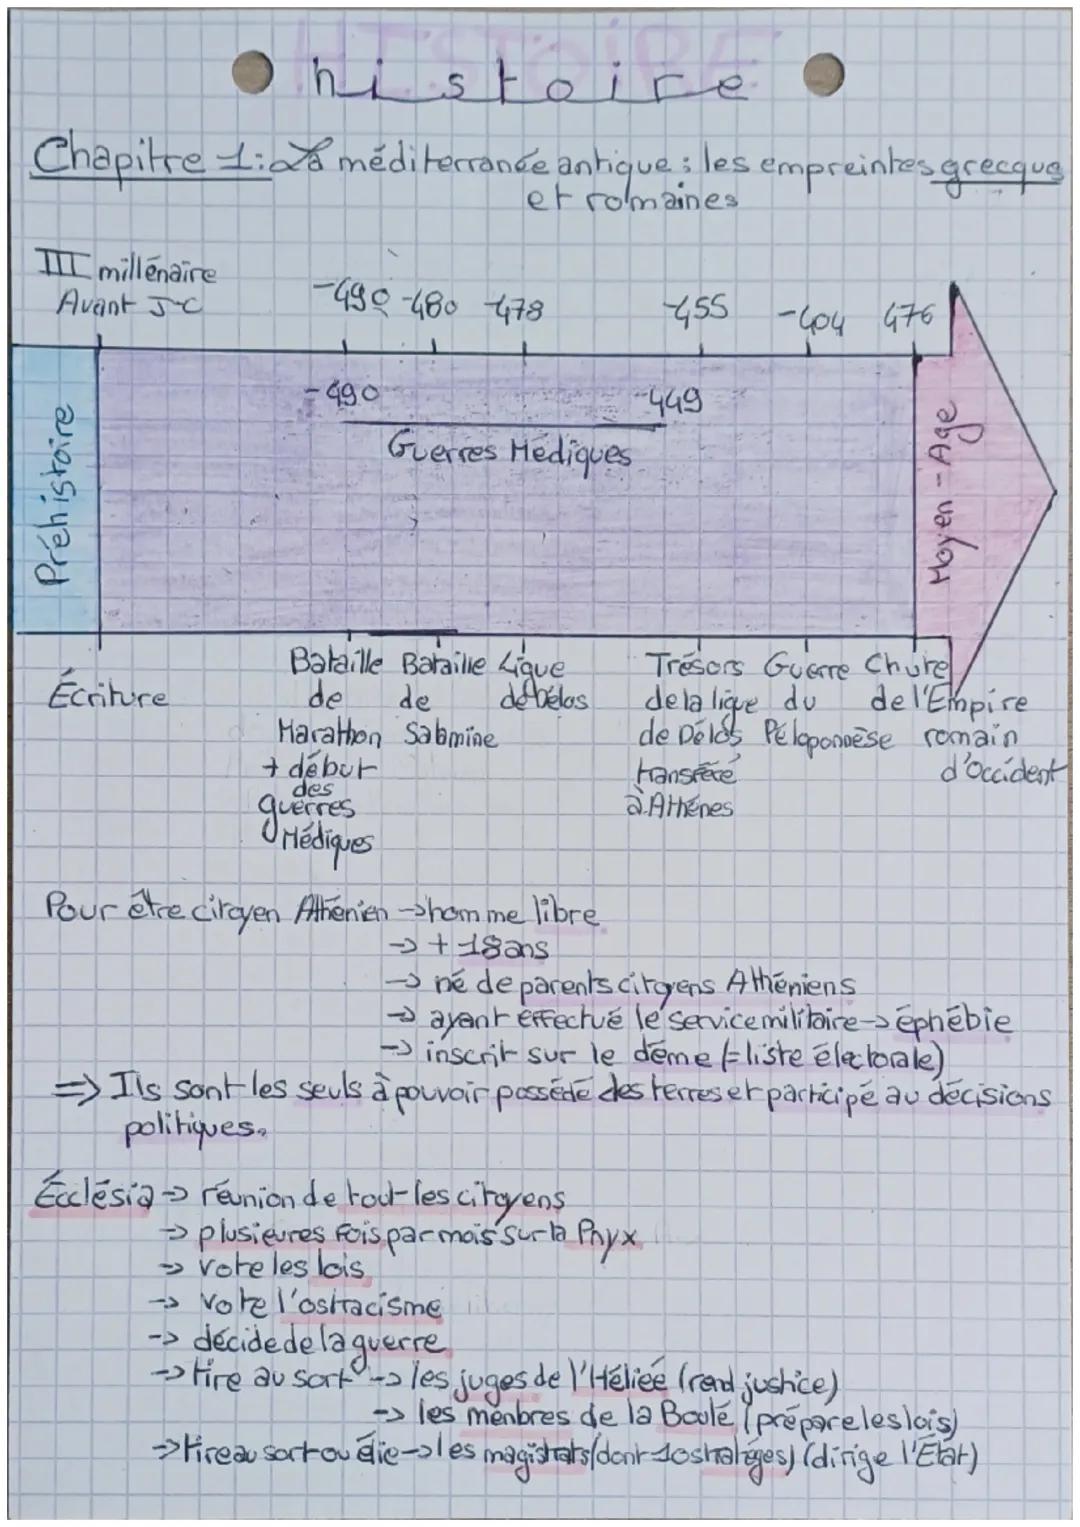 HISTOIRE
histoire
Chapitre 1: La méditerranée antique : les empreintes grecque
et romaines
III millénaire
Avant J-C
-490 -480 -478 -455 -404 476
-490 -449
Guerres Médiques
Préhistoire
Moyen-Age
Écriture
Bataille
de
Marathon
+ début
des
guerres
Médiques
Bataille
de
Salamine
Ligue
de Délos
Trésors
de la ligue
de Délos
transféré
à Athénes
Guerre
du
Péloponnèse
Chute
de l'Empire
romain
d'Occident
Pour être citoyen Athénien -> homme libre
-> + 18 ans
-> né de parents citoyens Athéniens
-> ayant effectué le service militaire -> éphébie
-> inscrit sur le dème (=liste électorale)
=> Ils sont les seuls à pouvoir possédé des terres et participé au décisions
politiques.
Écclésia -> réunion de tout les citoyens
-> plusieures fois par mois sur la Pnyx
-> vote les lois
-> vote l'ostracisme
-> décide de la guerre
-> tire au sort -> les juges de l'Héliée (rend justice)
-> les menbres de la Boulé (prépare les lois)
-> tire au sort ou élie -> les magistrats (dont 10 stratéges) (dirige l'État)